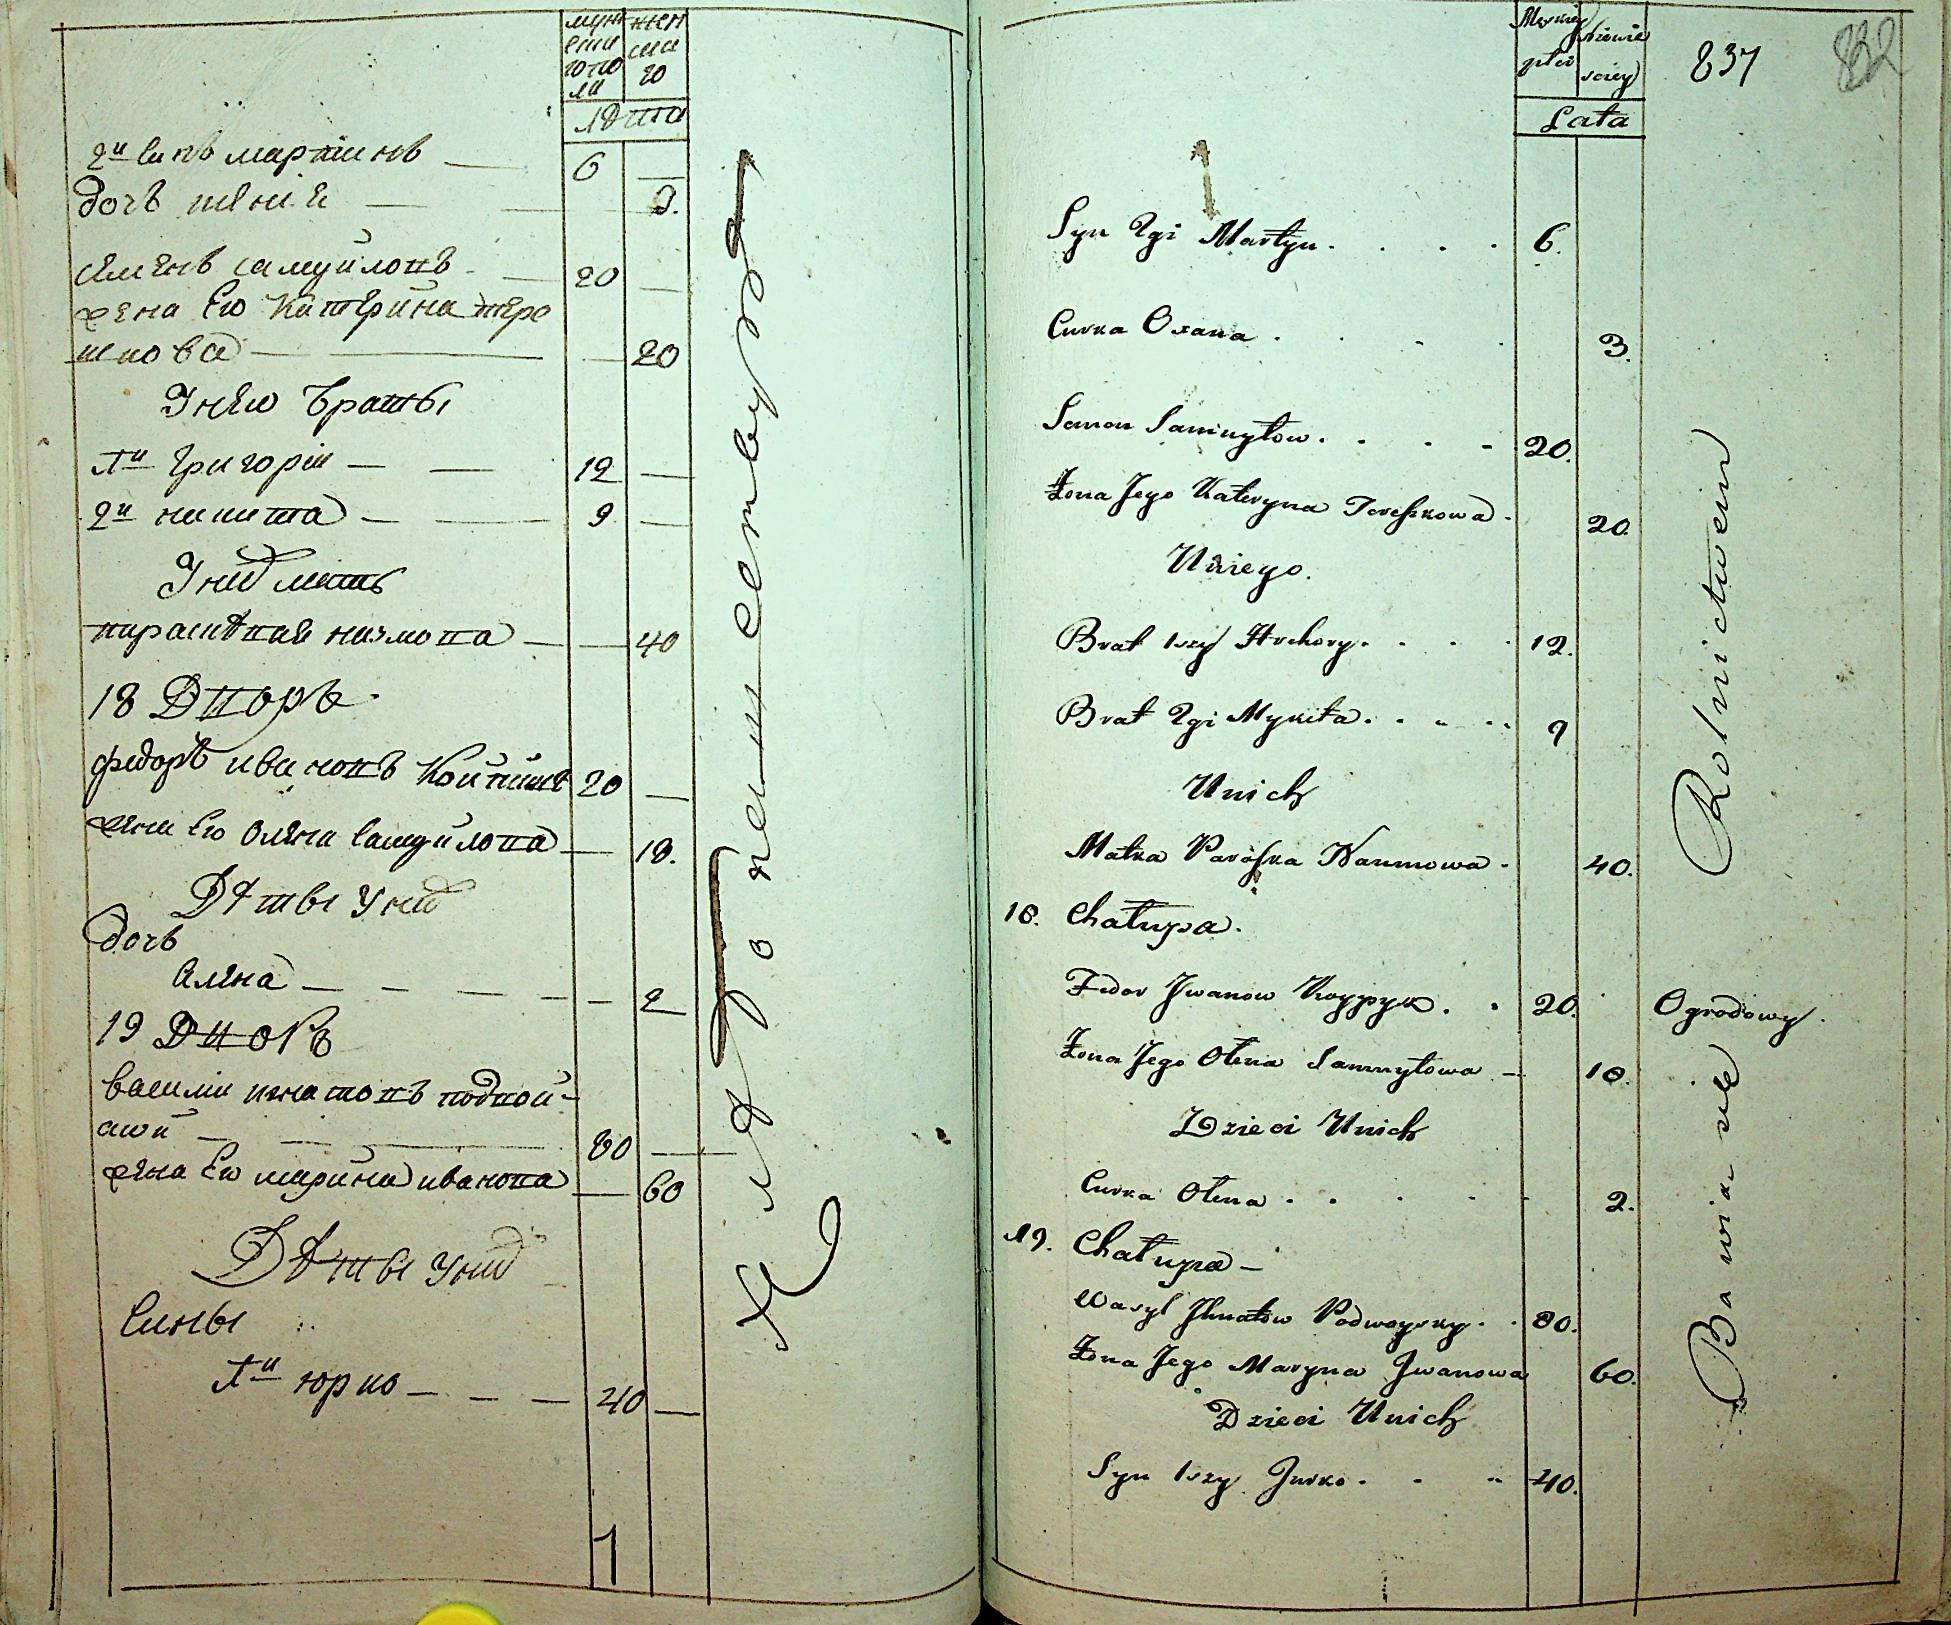 муж жен
ска ска
гопо го
ла
Лѣта
2й Синъ мартинъ — 6 —
дочь ксеня — — 3.
семенъ самуиловъ — 20 —
жена Его Катерина тере
шкова — — 20
У нею браты
1й григорій — — 12 —
2й никита — — 9 —
У ныхъ мать
парасковия наумова — — 40
18 Дворъ
федоръ ивановъ Койпишъ 20 —
жена Его олена самуилова — 18.
Дѣти у ныхъ
дочь
Алена — — — — 2
19 Дворъ
васили игнатовъ подвой-
ский — — 80 —
жена Его марина иванова — 60
Дѣти у ныхъ
Сины
1й юрко — — — 40 —
Хлѣбопашествуютъ
Męskiej Niewie
płci sciey
Lata
837
832
Syn 2gi Martyn . . . . 6.
Curka Oxana . . . . 3.
Semen Samuyłow . . . - 20.
Żona Jego Kateryna Tereszkowa . 20.
U niego.
Brat 1szy Hrehory . . . . 12.
Brat 2gi Mykita . . . . 9
U nich
Matka Paraska Naumowa . 40.
18. Chałupa.
Fedor Jwanow Koypysz . . 20. Ogrodowy.
Żona Jego Ołena Samuyłowa - 18.
Dzieci U nich
Curka Ołena . . . . . 2.
19. Chałupa -
Wasyl Jhnatow Podwoysky . . 80.
Żona Jego Maryna Jwanowa 60.
Dzieci U nich
Syn 1szy Jurko . . . 40.
Bawia sie Rolnictwem